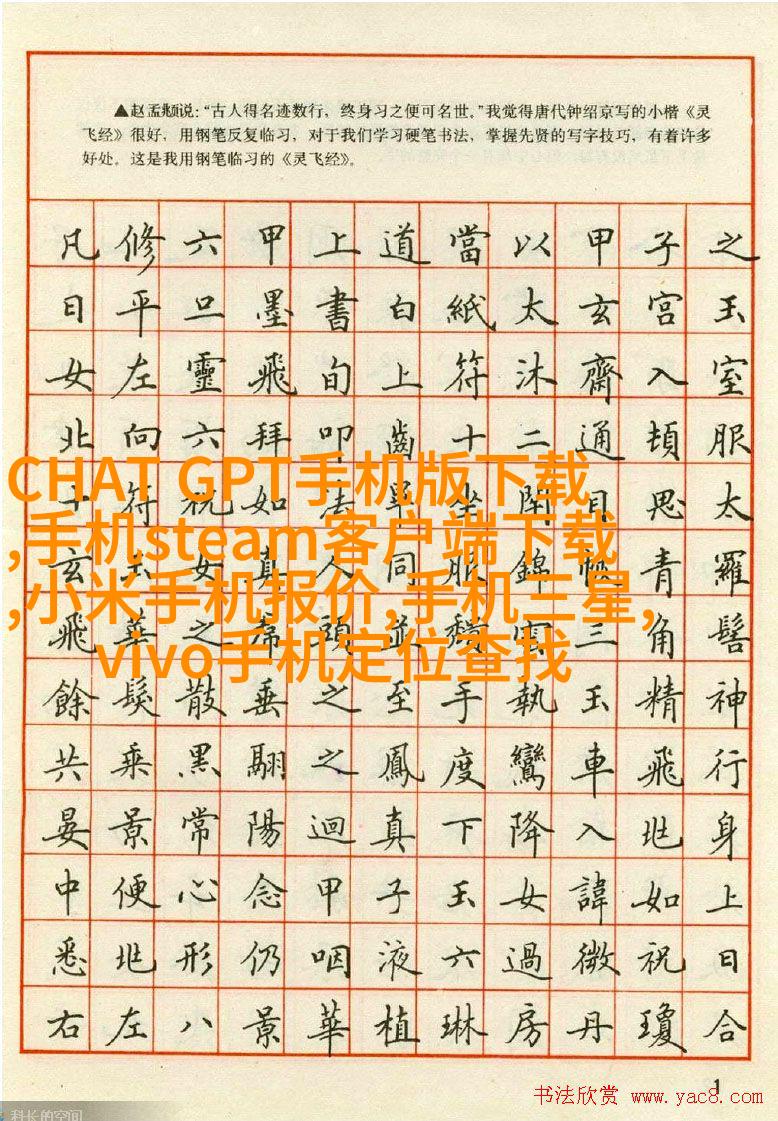 ▲赵孟頫说:“古人得名迹数行,终身习之便可名世。”我觉得唐代钟绍京写的小楷《灵
飞经》很好,用钢笔反复临习,对于我们学习硬笔书法,掌握先贤的写字技巧,有着许多
好处。这是我用钢笔临习的《灵飞经》。
凡修六甲上道當以甲子之
日平旦墨書白紙太玄宮玉
女左靈飛旬上符沐齋入室
北向六拜叩齒十二通頓服
十符祝如法畢坐閉目思太
玄女真人同服錦帔青羅
飛華之帬頭並頽雲三角髻
餘髮散垂之至手執玉精神
共乘黑翮之鳳度鸞車飛行
晏景常陽迴真下降入兆身
中便心念甲子玉女諱如上
悉兆形仍咽液六過微祝曰
右左八景華植琳房丹瓊合
CHAT GPT手机版下载
,手机steam客户端下载
,小米手机报价,手机三星,
vivo手机定位查找
1
书法欣赏 www.yac8.com
科长的空间